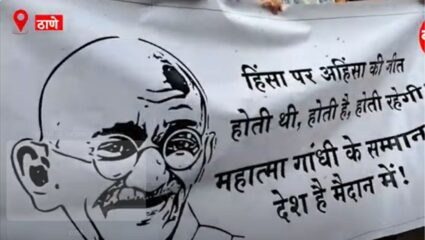 ठाणे
हिंसा पर अहिंसा की जीत
होती थी, होती है, होती रहेगी
महात्मा गांधी के सम्मान
देश है मैदान में!